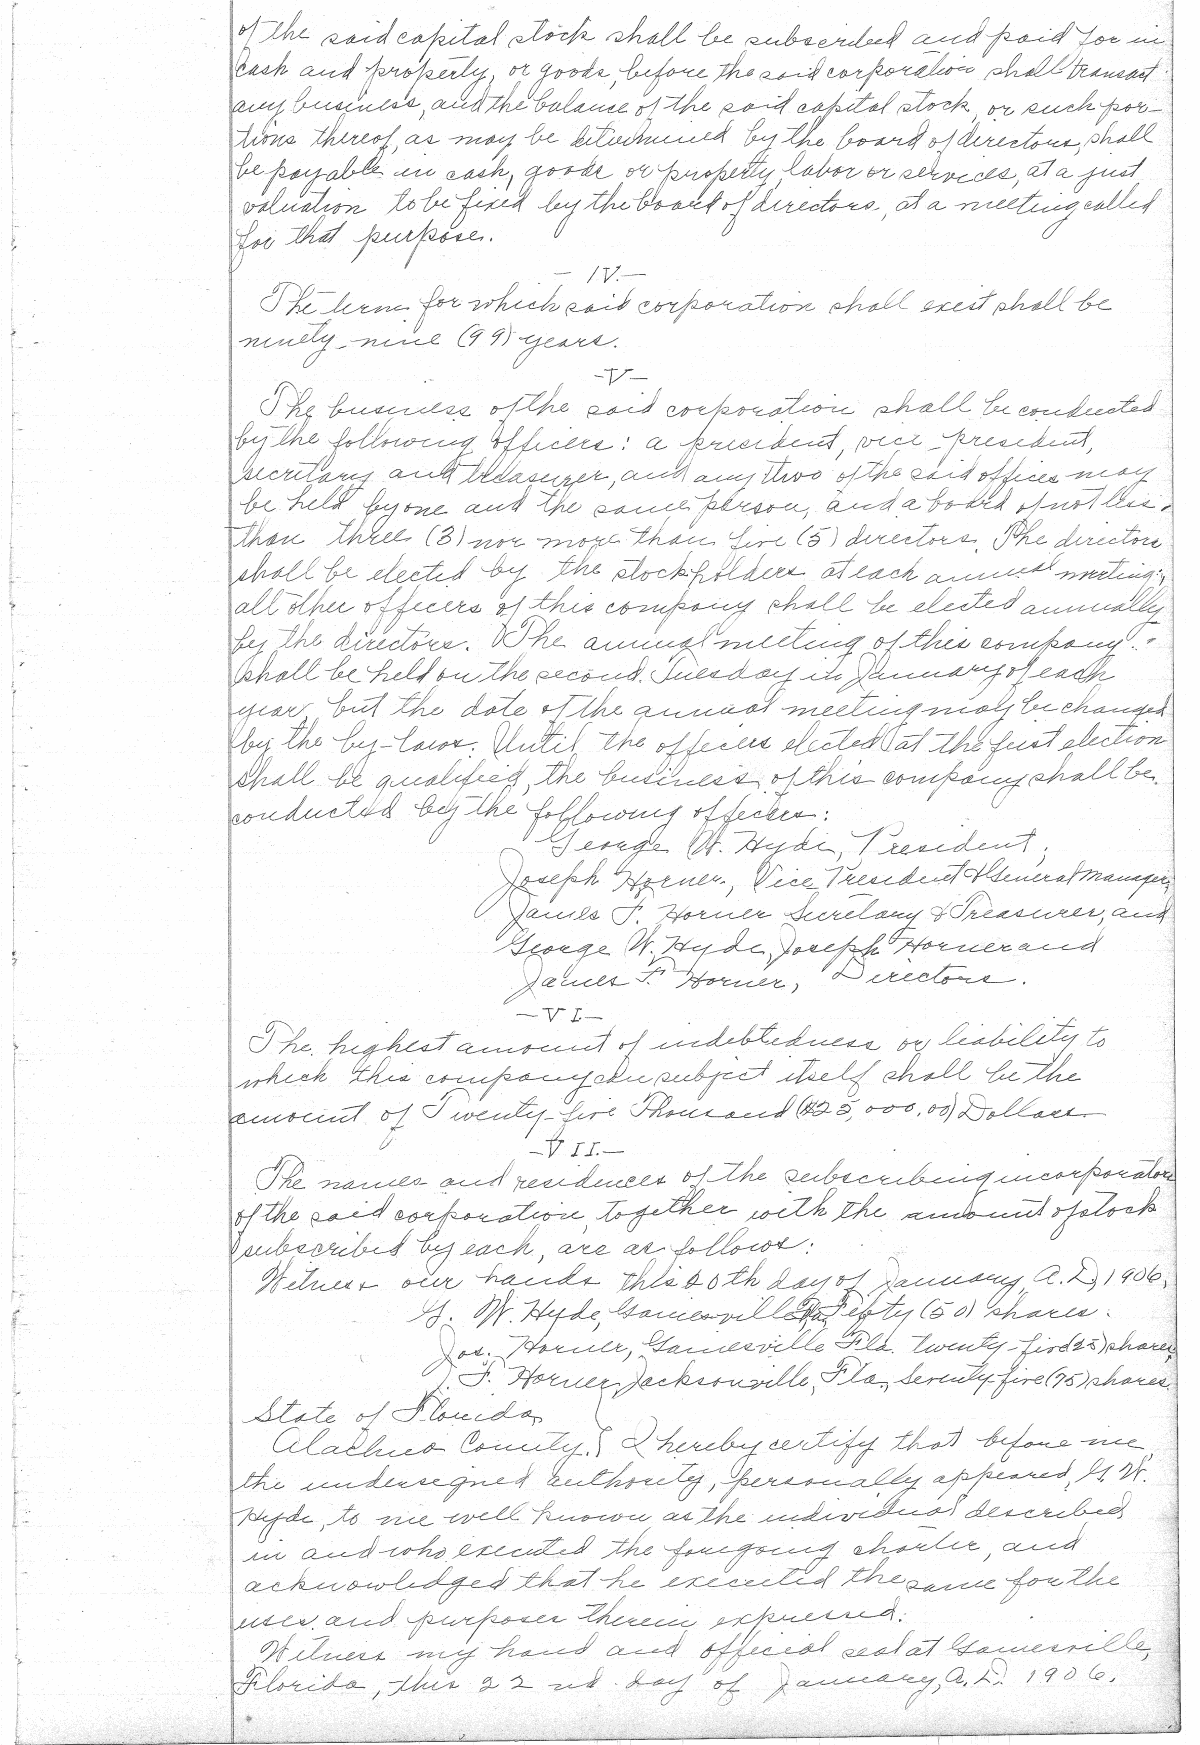 of the said capital stock shall be subscribed and paid for in
cash and property, or goods, before the said corporation shall transact
any business, and the balance of the said capital stock, or such por-
tions thereof, as may be determined by the board of directors, shall
be payable in cash, goods or property, labor or services, at a just
valuation to be fixed by the board of directors, at a meeting called
for that purpose.
— IV. —
The term for which said corporation shall exist shall be
ninety-nine (99) years.
—V—
The business of the said corporation shall be conducted
by the following officers: a president, vice-president,
secretary and treasurer, and any two of the said offices may
be held by one and the same person, and a board of not less
than three (3) nor more than five (5) directors. The directors
shall be elected by the stockholders at each annual meeting;
all other officers of this company shall be elected annually
by the directors. The annual meeting of this company
shall be held on the second Tuesday in January of each
year, but the date of the annual meeting may be changed
by the by-laws. Until the officers elected at the first election
shall be qualified, the business of this company shall be
conducted by the following officers:
George W. Hyde, President,
Joseph Horner, Vice President & General Manager,
James F. Horner Secretary & Treasurer, and
George W. Hyde, Joseph Horner and
James F. Horner, Directors.
—VI—
The highest amount of indebtedness or liability to
which this company can subject itself shall be the
amount of Twenty-five Thousand ($25,000.00) Dollars
—VII.—
The names and residences of the subscribing incorporators
of the said corporation, together with the amount of stock
subscribed by each, are as follows:
Witness our hands this 20th day of January, A.D, 1906,
G. W. Hyde, Gainesville, Fla, Fifty (50) shares.
Jos. Horner, Gainesville Fla. twenty-five (25) shares,
J. F. Horner, Jacksonville, Fla., Seventy five (75) shares.
State of Florida,
Alachua County.} I hereby certify that before me,
the undersigned authority, personally appeared, G. W.
Hyde, to me well known as the individual described
in and who executed the foregoing charter, and
acknowledged that he executed the same for the
uses and purposes therein expressed.
Witness my hand and official seal at Gainesville,
Florida, this 22nd day of January, A.D. 1906.